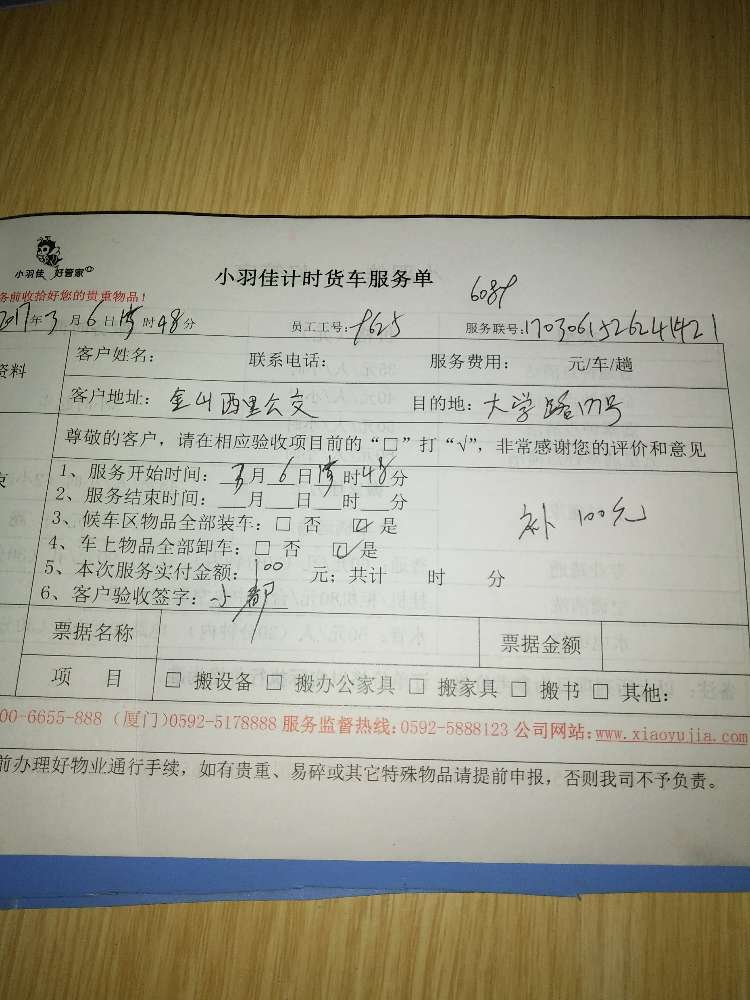 小羽佳 好管家
小羽佳计时货车服务单
6089
务前收拾好您的贵重物品！
2017年3月6日15时48分 员工工号：9625 服务联号：1703061526241421
资料
客户姓名： 联系电话： 服务费用： 元/车/趟
客户地址：金山西里公交 目的地：大学路171号
尊敬的客户，请在相应验收项目前的“□”打“√”，非常感谢您的评价和意见
1、服务开始时间：3月6日15时48分
2、服务结束时间：___月___日___时___分
3、候车区物品全部装车：□ 否 ☑ 是
补 100元
4、车上物品全部卸车：□ 否 ☑ 是
5、本次服务实付金额：100 元；共计 时 分
6、客户验收签字：小郡
票据名称 票据金额
项 目 □ 搬设备 □ 搬办公家具 □ 搬家具 □ 搬书 □ 其他：
00-6655-888（厦门）0592-5178888 服务监督热线：0592-5888123 公司网站：www.xiaoyujia.com
前办理好物业通行手续，如有贵重、易碎或其它特殊物品请提前申报，否则我司不予负责。